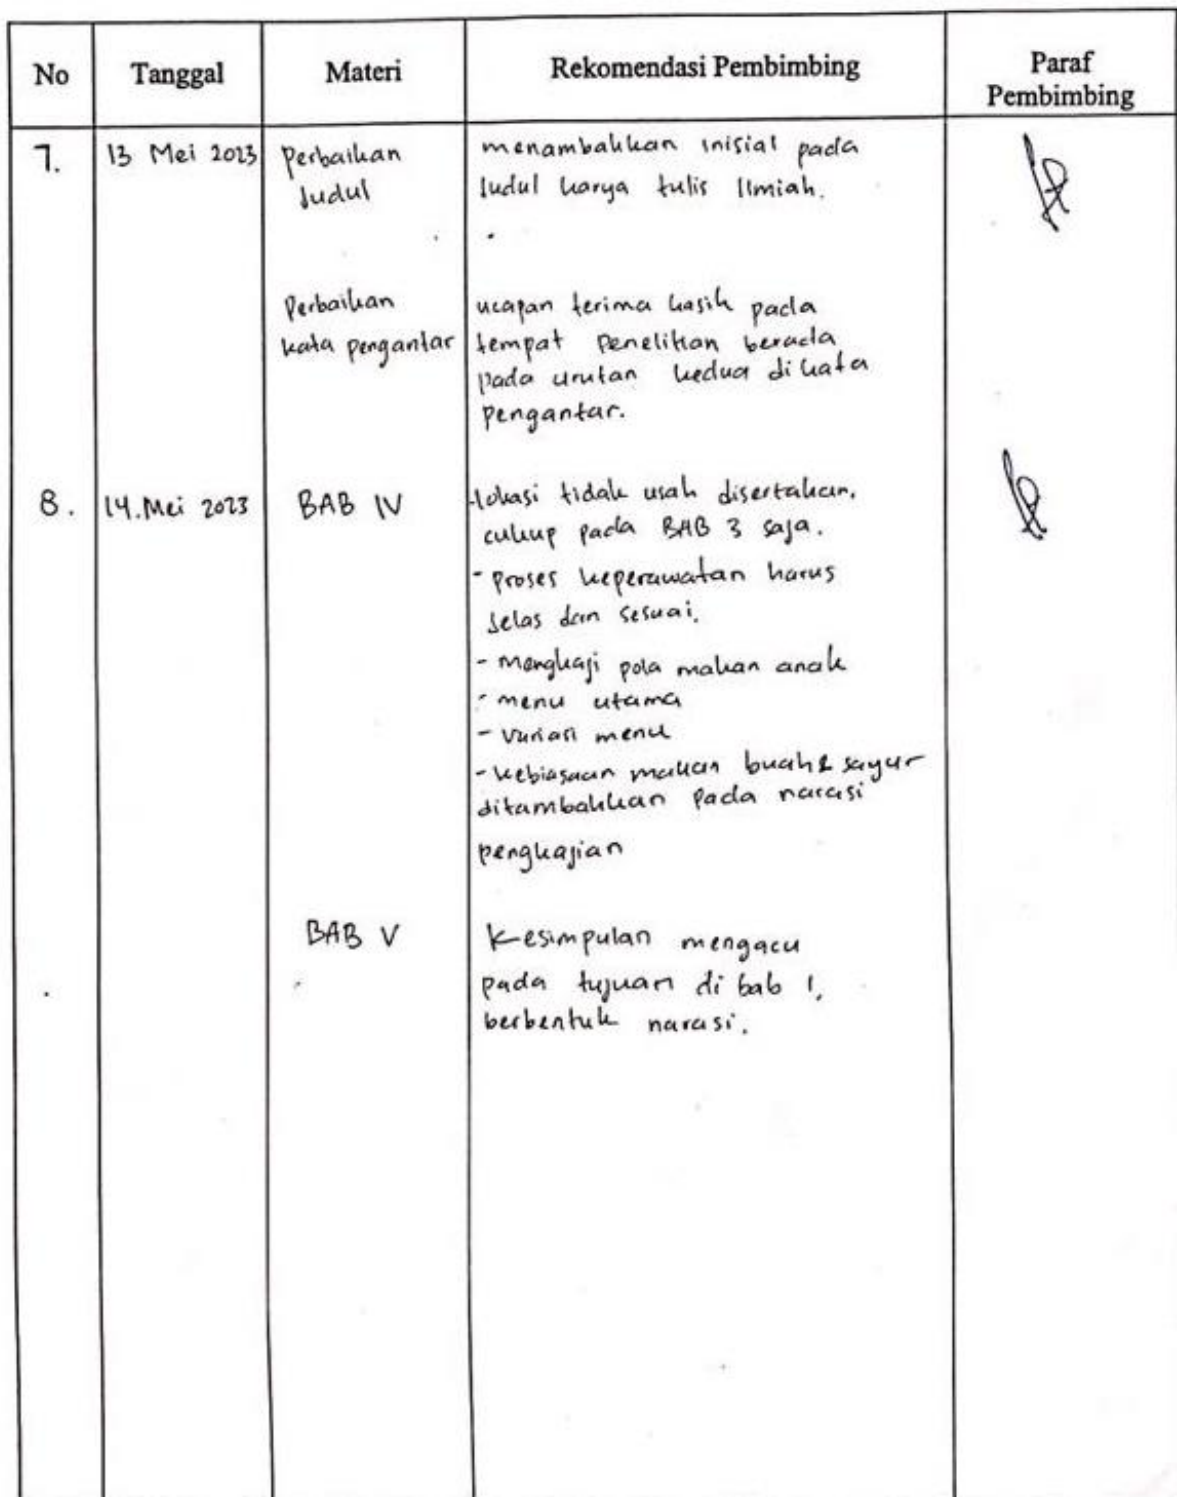 No Tanggal Materi Rekomendasi Pembimbing Paraf Pembimbing
7. 13 Mei 2023 Perbaikan menambahkan inisial pada
Judul Judul karya tulis Ilmiah.
Perbaikan ucapan terima kasih pada
kata pengantar tempat Penelitian berada
pada urutan kedua di kata
Pengantar.
8. 14. Mei 2023 BAB IV -lokasi tidak usah disertakan.
cukup pada BAB 3 saja.
- Proses keperawatan harus
Jelas dan sesuai.
- Mengkaji pola makan anak
- menu utama
- variasi menu
- kebiasaan makan buah & sayur
ditambahkan pada narasi
pengkajian
BAB V Kesimpulan mengacu
pada tujuan di bab 1,
berbentuk narasi.